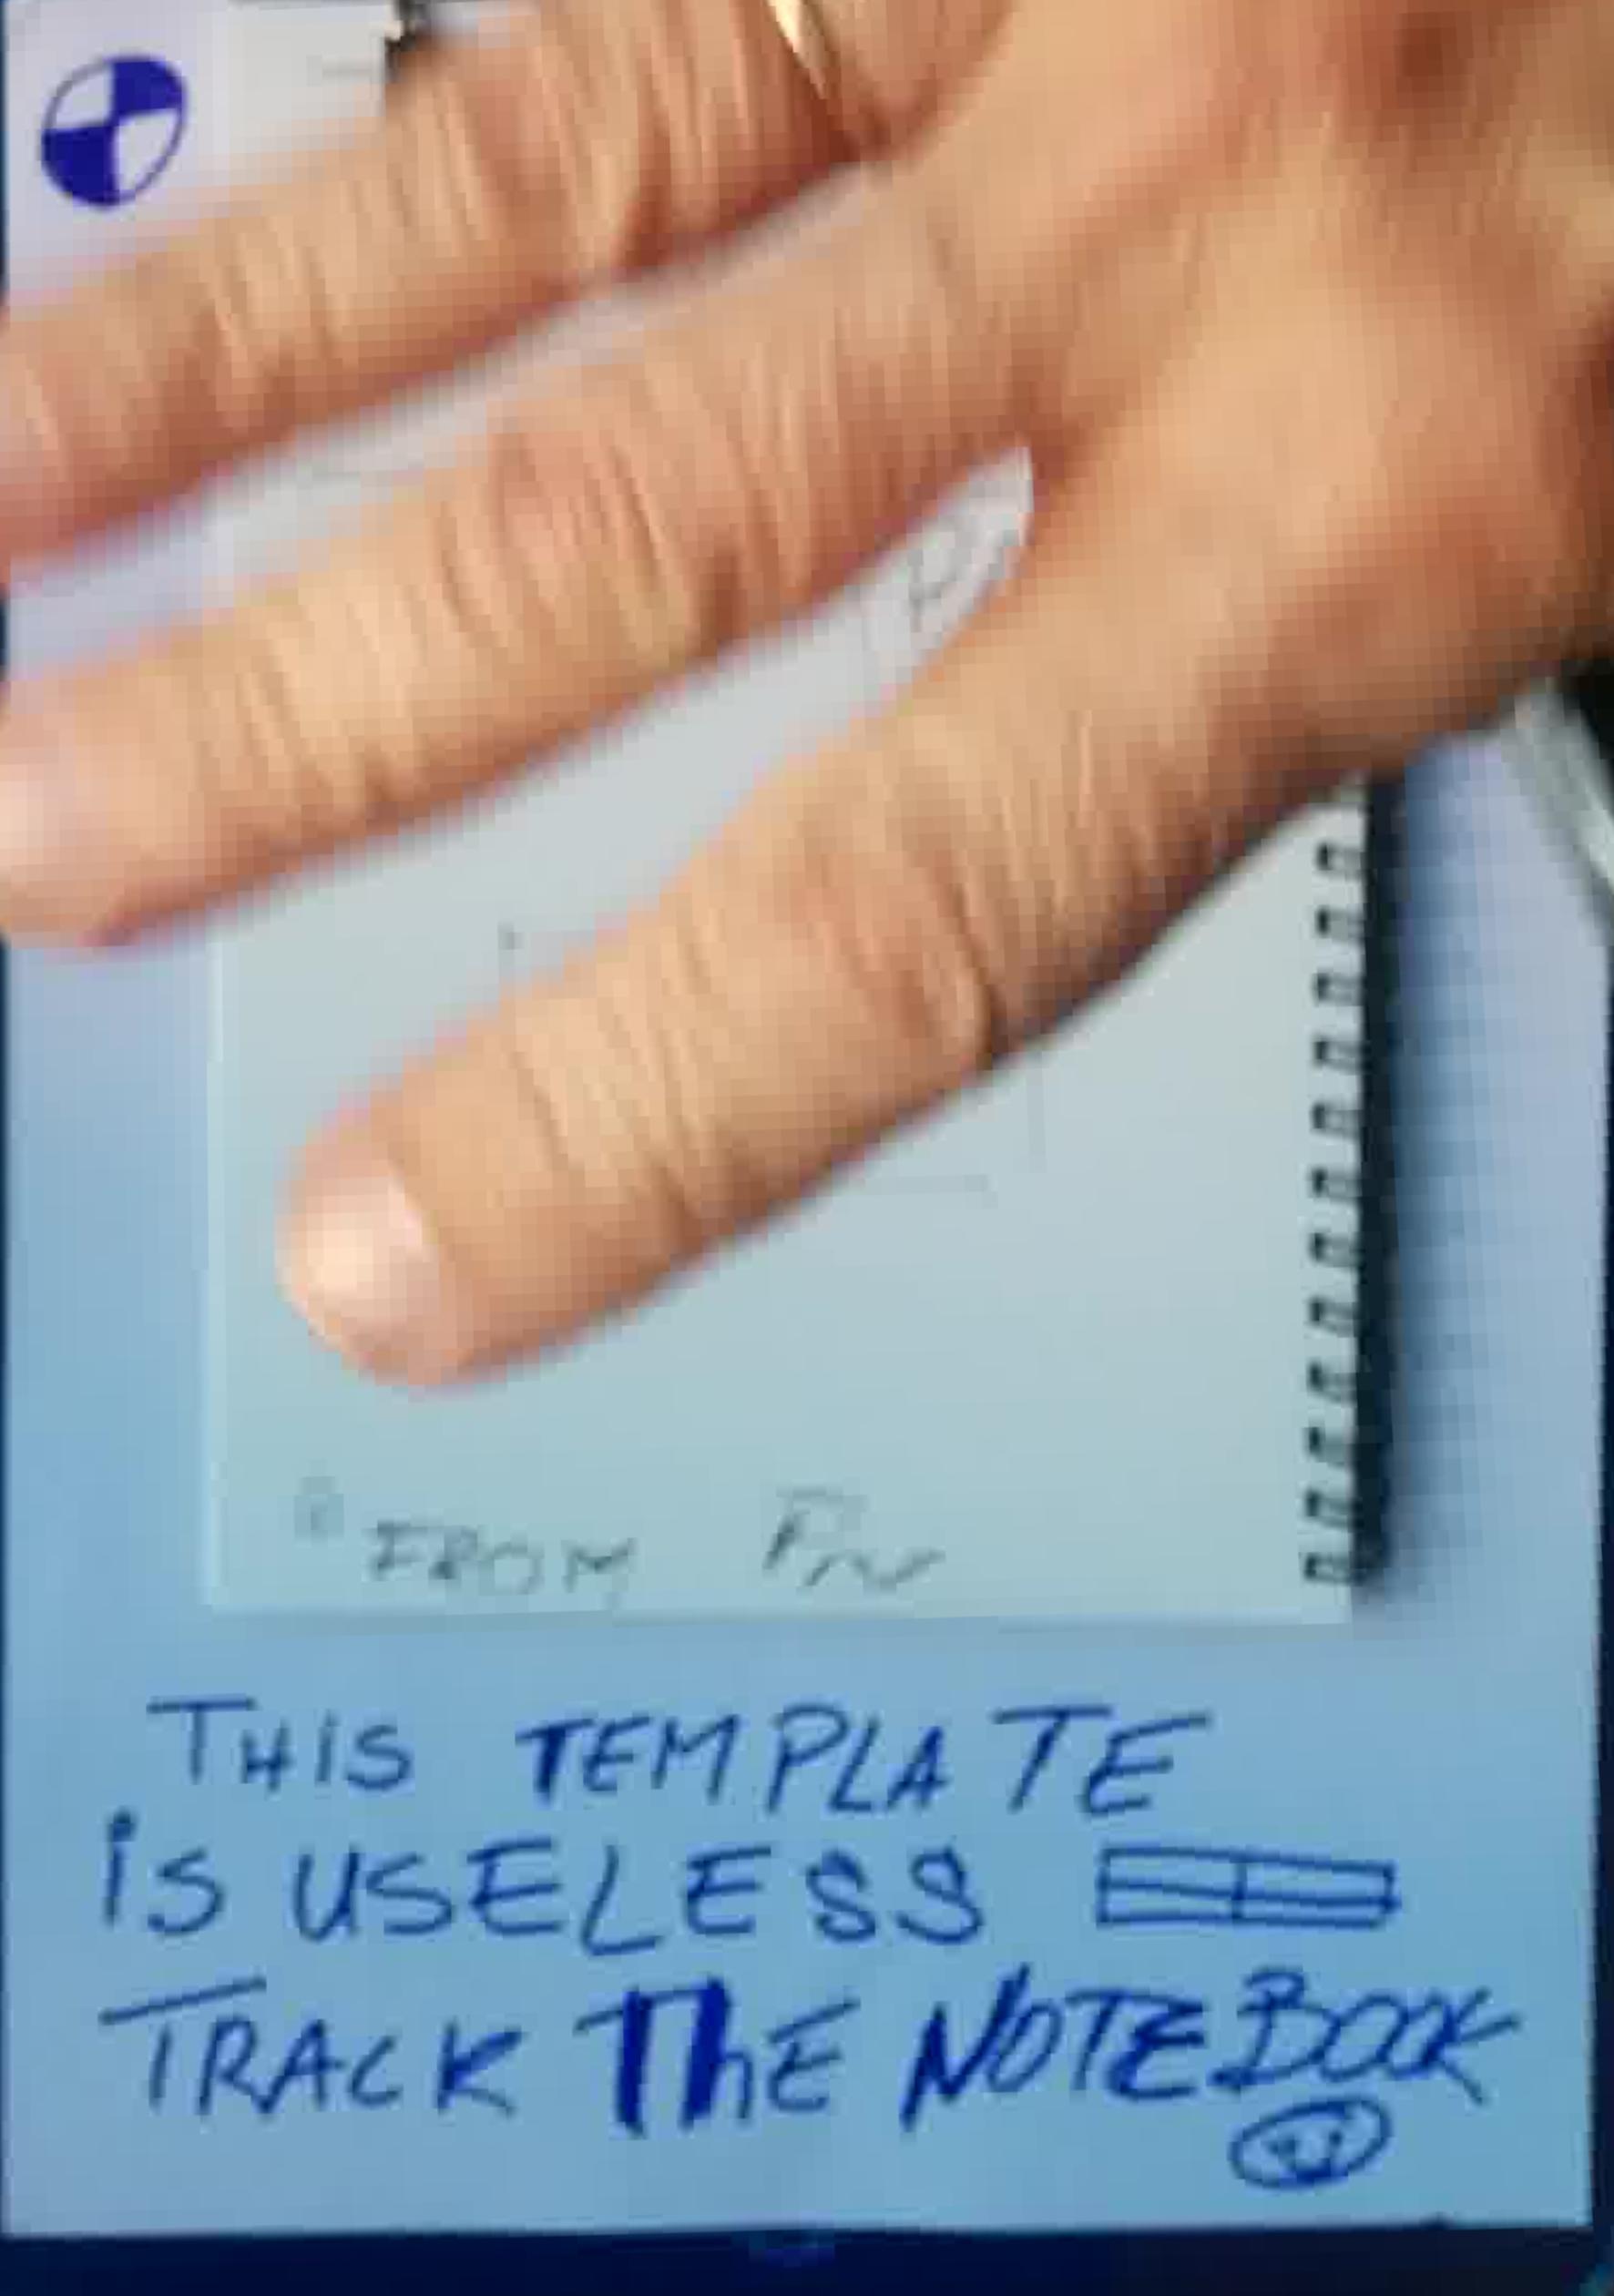 FROM
THIS TEMPLATE
is USELESS
TRACK ThE NOTEBOOK